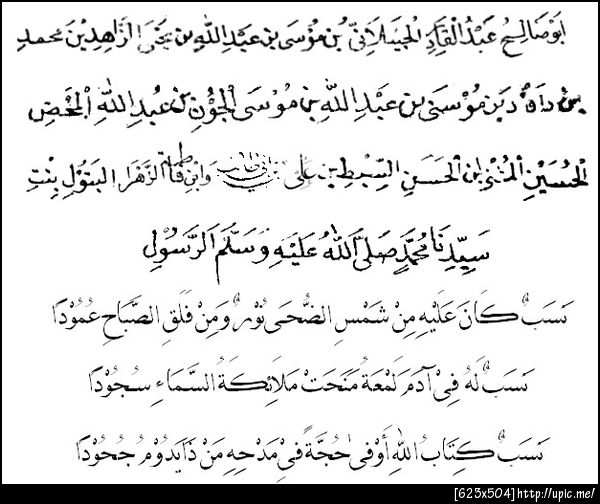 ابو صالح عبد القادر الجيلاني بن موسى بن عبد الله بن يحيى الزاهد بن محمد
بن داود بن موسى بن عبد الله بن موسى الجون بن عبد الله المحض
الحسين المثنى بن الحسن السبط بن علي بن ابي طالب وابن فاطمة الزهرا البتول بنت
سَيِّدِنَا مُحَمَّدٍ صَلَّى اللهُ عَلَيْهِ وَسَلَّمَ الرَّسُوْلِ
نَسَبٌ كَانَ عَلَيْهِ مِنْ شَمْسِ الضُّحَى نُوْرٌ وَمِنْ فَلَقِ الصَّبَاحِ عُمُوْدًا
نَسَبٌ لَهُ فِيْ آدَمَ لَمْعَةٌ مَنَحَتْ مَلَائِكَةُ السَّمَاءِ سُجُوْدًا
نَسَبٌ كِتَابُ اللهِ أَوْفٰى حُجَّةً فِيْ مَدْحِهِ مَنْ ذَا يَدُوْمُ جُحُوْدًا
[623x504]http://upic.me/